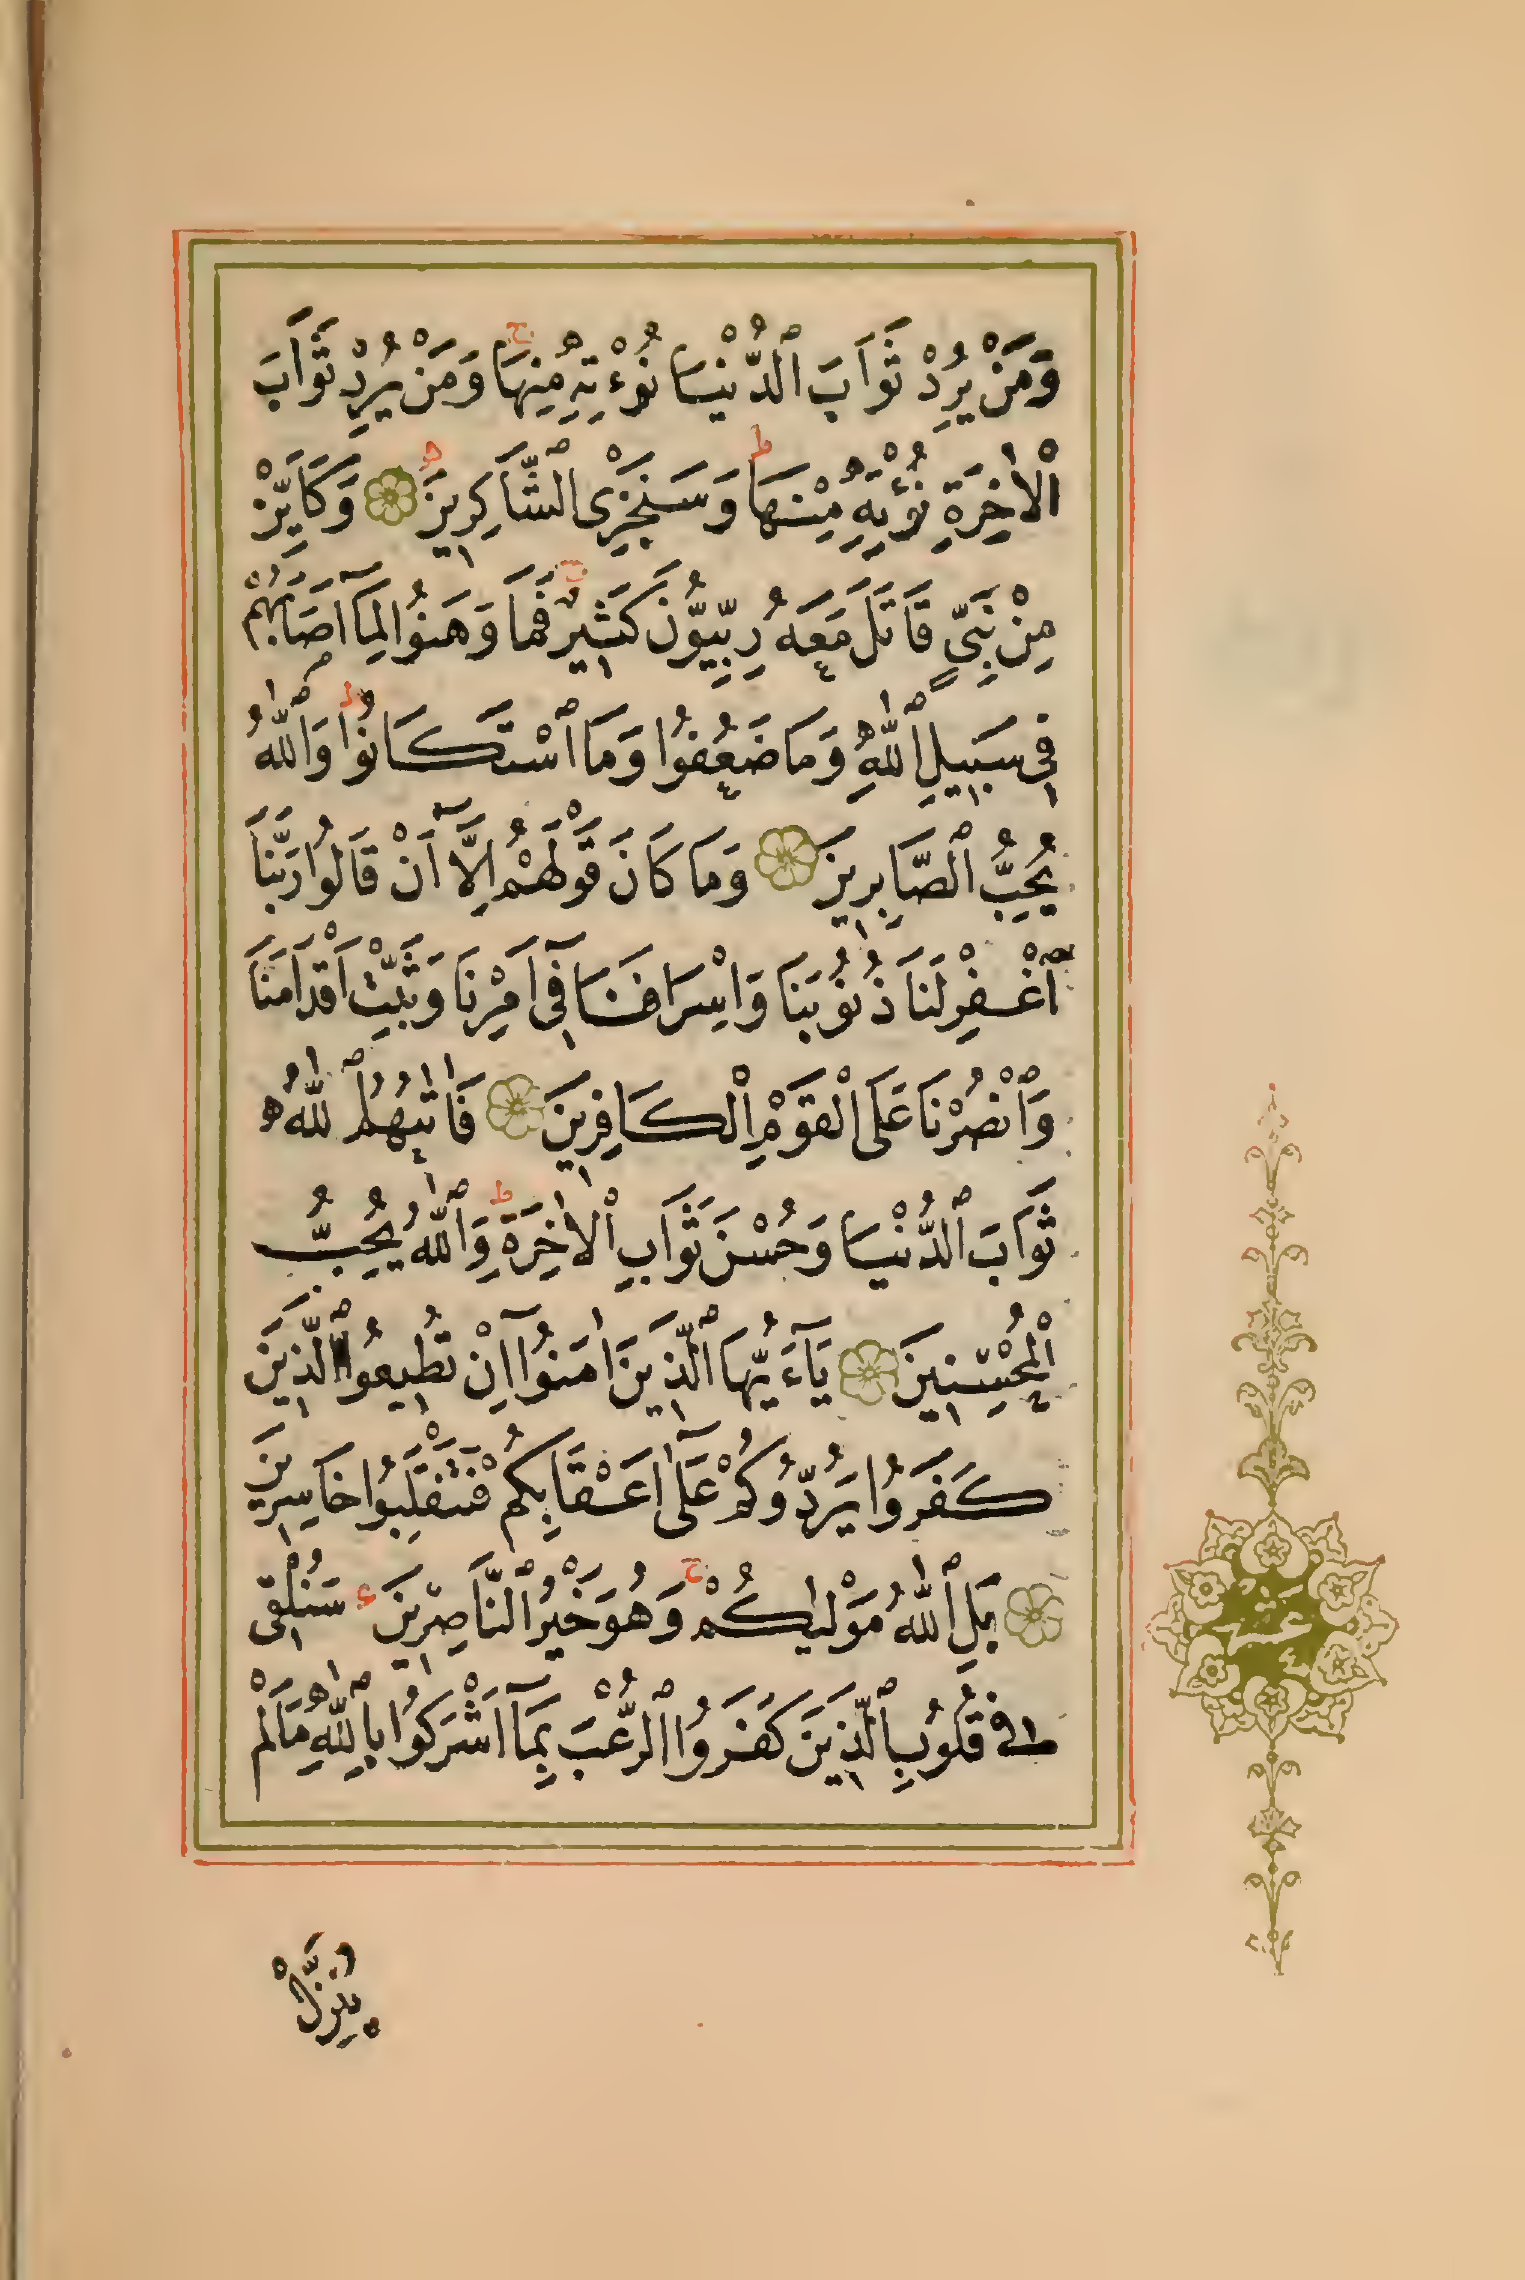 وَمَنْ يُرِدْ ثَوَابَ ٱلدُّنْيَا نُؤْتِهِ مِنْهَا وَمَنْ يُرِدْ ثَوَابَ
ٱلْاٰخِرَةِ نُؤْتِهِ مِنْهَا وَسَنَجْزِى ٱلشَّاكِرِينَ وَكَاَيِّنْ
مِنْ نَبِىٍّ قَاتَلَ مَعَهُ رِبِّيُّونَ كَثِيرٌ فَمَا وَهَنُوا لِمَآ اَصَابَهُمْ
فِى سَبِيلِ ٱللّٰهِ وَمَا ضَعُفُوا وَمَا ٱسْتَكَانُوا وَٱللّٰهُ
يُحِبُّ ٱلصَّابِرِينَ وَمَا كَانَ قَوْلَهُمْ اِلَّآ اَنْ قَالُوا رَبَّنَا
ٱغْفِرْ لَنَا ذُنُوبَنَا وَاِسْرَافَنَا فِىٓ اَمْرِنَا وَثَبِّتْ اَقْدَامَنَا
وَٱنْصُرْنَا عَلَى ٱلْقَوْمِ ٱلْكَافِرِينَ فَاٰتٰىهُمُ ٱللّٰهُ
ثَوَابَ ٱلدُّنْيَا وَحُسْنَ ثَوَابِ ٱلْاٰخِرَةِ وَٱللّٰهُ يُحِبُّ
ٱلْمُحْسِنِينَ يَآءَيُّهَا ٱلَّذِينَ اٰمَنُوٓا اِنْ تُطِيعُوا ٱلَّذِينَ
كَفَرُوا يَرُدُّوكُمْ عَلٰٓى اَعْقَابِكُمْ فَتَنْقَلِبُوا خَاسِرِينَ
بَلِ ٱللّٰهُ مَوْلٰيكُمْ وَهُوَ خَيْرُ ٱلنَّاصِرِينَ سَنُلْقِى
فِى قُلُوبِ ٱلَّذِينَ كَفَرُوا ٱلرُّعْبَ بِمَآ اَشْرَكُوا بِٱللّٰهِ مَا لَمْ
يُنَزِّلْ